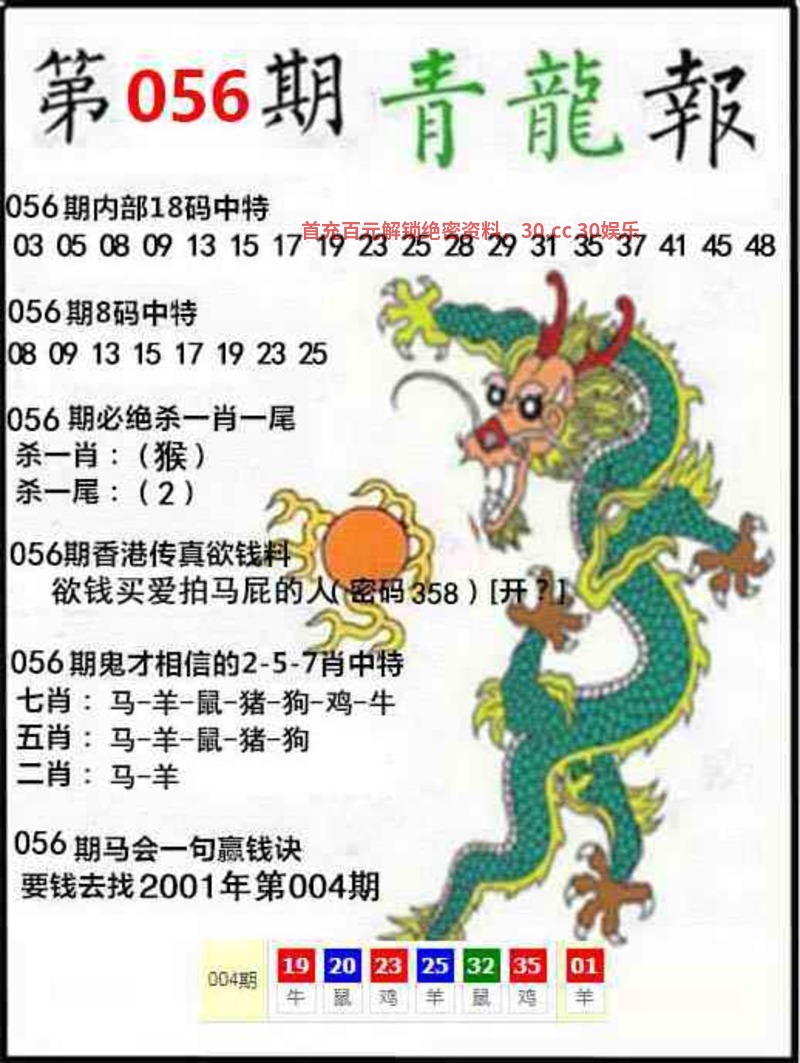 第056期青龍報
056期内部18码中特
首充百元解锁绝密资料。30.cc 30娱乐
03 05 08 09 13 15 17 19 23 25 28 29 31 35 37 41 45 48
056期8码中特
08 09 13 15 17 19 23 25
056 期必绝杀一肖一尾
杀一肖：（猴）
杀一尾：（2）
056期香港传真欲钱料
欲钱买爱拍马屁的人( 密码358 ) [开？]
056期鬼才相信的2-5-7肖中特
七肖： 马-羊-鼠-猪-狗-鸡-牛
五肖： 马-羊-鼠-猪-狗
二肖： 马-羊
056 期马会一句赢钱诀
要钱去找2001年第004期
004期 19 20 23 25 32 35 01
牛 鼠 鸡 羊 鼠 鸡 羊